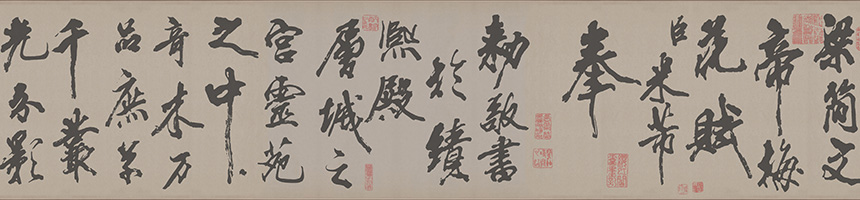 梁简文
帝梅
花賦
臣米芾
奉
勑敬書
於績
熙殿
層城之
宫靈苑
之中
奇木万
品庶草
千叢
光分影